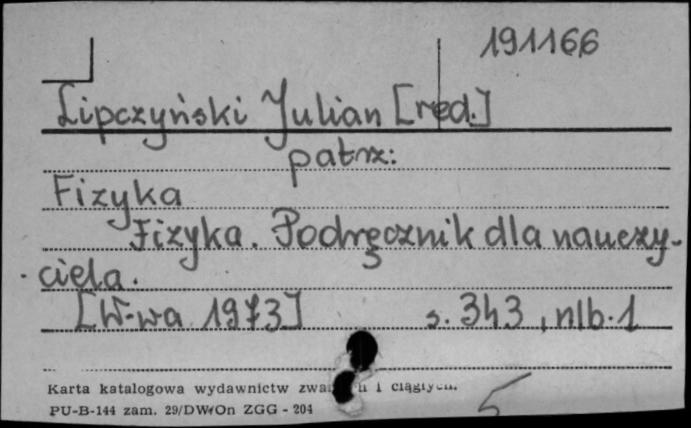 191166
Lipczyński Julian [red.]
patrz:
Fizyka
Fizyka. Podręcznik dla nauczy-
ciela.
[W-wa 1973] s. 343, nlb. 1
Karta katalogowa wydawnictw i ciągłych.
PU-B-144 zam. 29/DW/On ZGG - 204
5